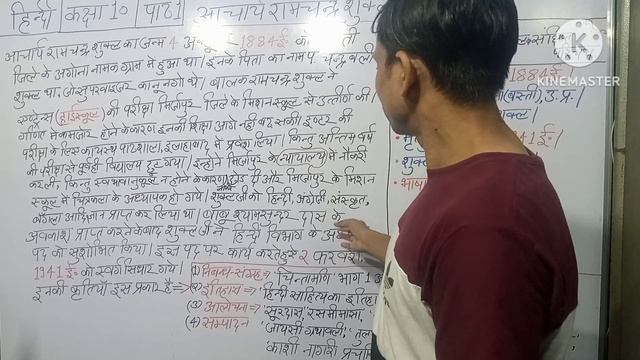 हिन्दी | कक्षा 10 | पाठ 1 | आचार्य रामचन्द्र शुक्ल
आचार्य रामचन्द्र शुक्ल का जन्म 4 1884 ई० को
जिले के अगोना नामक ग्राम में हुआ था। इनके पिता का नाम पं. चन्द्रबली
शुक्ल था, जो सुपरवाइजर कानूनगो थे। बालक रामचन्द्र शुक्ल ने
एण्ट्रेन्स (हाईस्कूल) की परीक्षा मिर्जापुर जिले के मिशन स्कूल से उत्तीर्ण की।
गणित में कमजोर होने के कारण इनकी शिक्षा आगे नहीं बढ़ सकी। इण्टर की
परीक्षा के लिए कायस्थ पाठशाला, इलाहाबाद में प्रवेश लिया। किन्तु अन्तिम वर्ष
की परीक्षा से पूर्व ही विद्यालय छूट गया। इन्होंने मिर्जापुर के न्यायालय में नौकरी
कर ली, किन्तु स्वभावानुकूल न होने के कारण छोड़ दी और मिर्जापुर के मिशन
स्कूल में चित्रकला के अध्यापक हो गये। शुक्ल जी को हिन्दी, अंग्रेजी, संस्कृत,
बंगला आदि ज्ञान प्राप्त कर लिया था। (बाबू श्यामसुन्दर दास के
अवकाश प्राप्त करने के बाद शुक्ल जी ने हिन्दी विभाग के
पद को सुशोभित किया। इस पद पर कार्य करते हुए 2 फरवरी
1941 ई० को स्वर्ग सिधार गये।
इनकी कृतियाँ इस प्रकार हैं ⇒
(1) निबन्ध-संग्रह ⇒ चिन्तामणि भाग 1
(2) इतिहास ⇒ हिन्दी साहित्य का
(3) आलोचना ⇒ 'सूरदास, रसमीमांसा,
(4) सम्पादन 'जायसी ग्रंथावली,
'काशी नागरी
1884 ई०
(बस्ती), उ.प्र.।
शुक्ल।
1941 ई०।
• शुक्ल
• भाषा
KINEMASTER